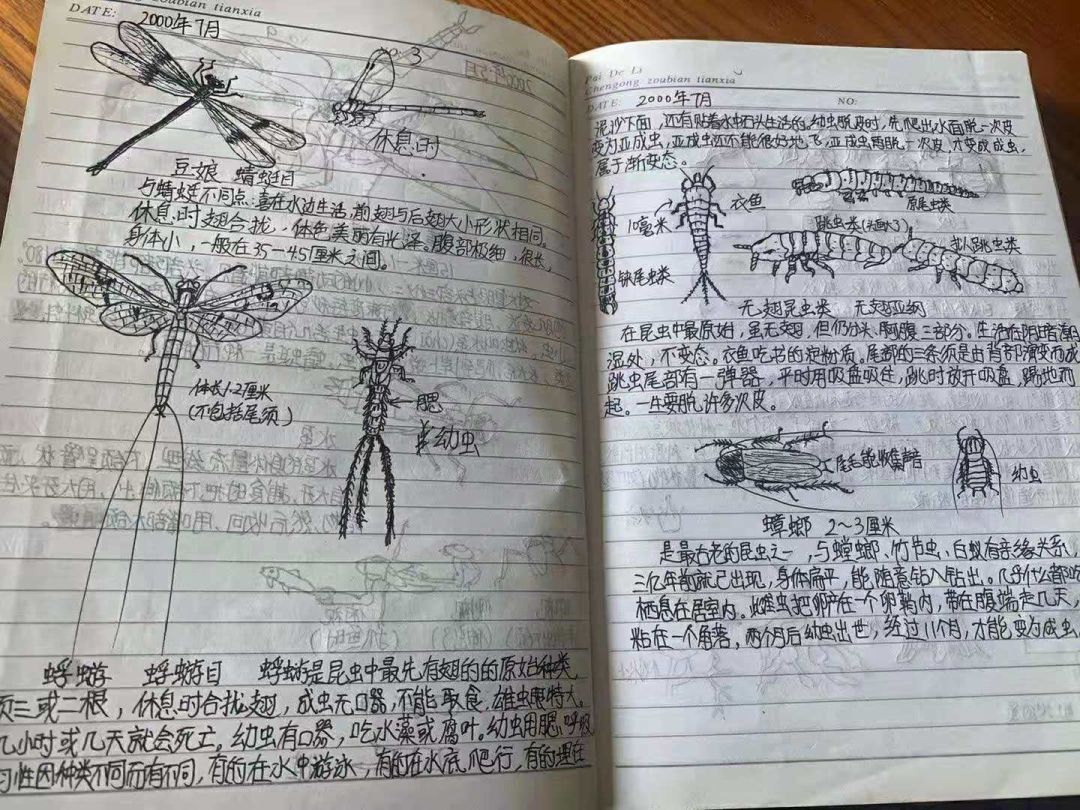 zoubian tianxia
DATE: 2000年7月
休息时
豆娘 蜻蜓目
与蜻蜓不同点:喜在水边生活,前翅与后翅大小形状相同。
休息时翅合拢,体色美丽有光泽。腹部极细,很长,
身体小,一般在35-45厘米之间。
体长1.2厘米
(不包括尾须)
腮
幼虫
蜉蝣 蜉蝣目 蜉蝣是昆虫中最先有翅的的原始种类,
须三或二根,休息时合拢翅,成虫无口器,不能取食.雄虫眼特大。
几小时或几天就会死亡。幼虫有口器,吃水藻或腐叶。幼虫用腮呼吸
习性因种类不同而有不同,有的在水中游泳,有的在水底爬行,有的埋在
Pai De Li
Chengong zoubian tianxia
DATE: 2000年7月 NO:
泥沙下面,还有贴着水中石头生活的.幼虫脱皮时,先爬出水面脱一次皮
变为亚成虫,亚成虫还不能很好地飞,亚成虫再脱一次皮,才变成成虫,
属于渐变态。
10毫米
衣鱼
原尾虫类
跳虫类
拟跳虫类
铗尾虫类
无翅昆虫类 无翅亚纲
在昆虫中最原始,虽无翅,但仍分头、胸腹三部分。生活在阴暗潮
湿处,不变态。衣鱼吃书的淀粉质。尾部的三条须是由背部演变而成
跳虫尾部有一弹器,平时用吸盘吸住,跳时放开吸盘,踢地而
起。一生要脱许多次皮。
尾毛能收集声音
幼虫
蟑螂 2~3厘米
是最古老的昆虫之一,与螳螂、竹节虫、白蚁有亲缘关系,
三亿年前就已出现,身体扁平,能随意钻入钻出。几乎什么都吃
栖息在居室内。雌虫把卵产在一个卵鞘内,带在腹端走几天,
粘在一个角落,两个月后幼虫出世,经过11个月,才能变为成虫